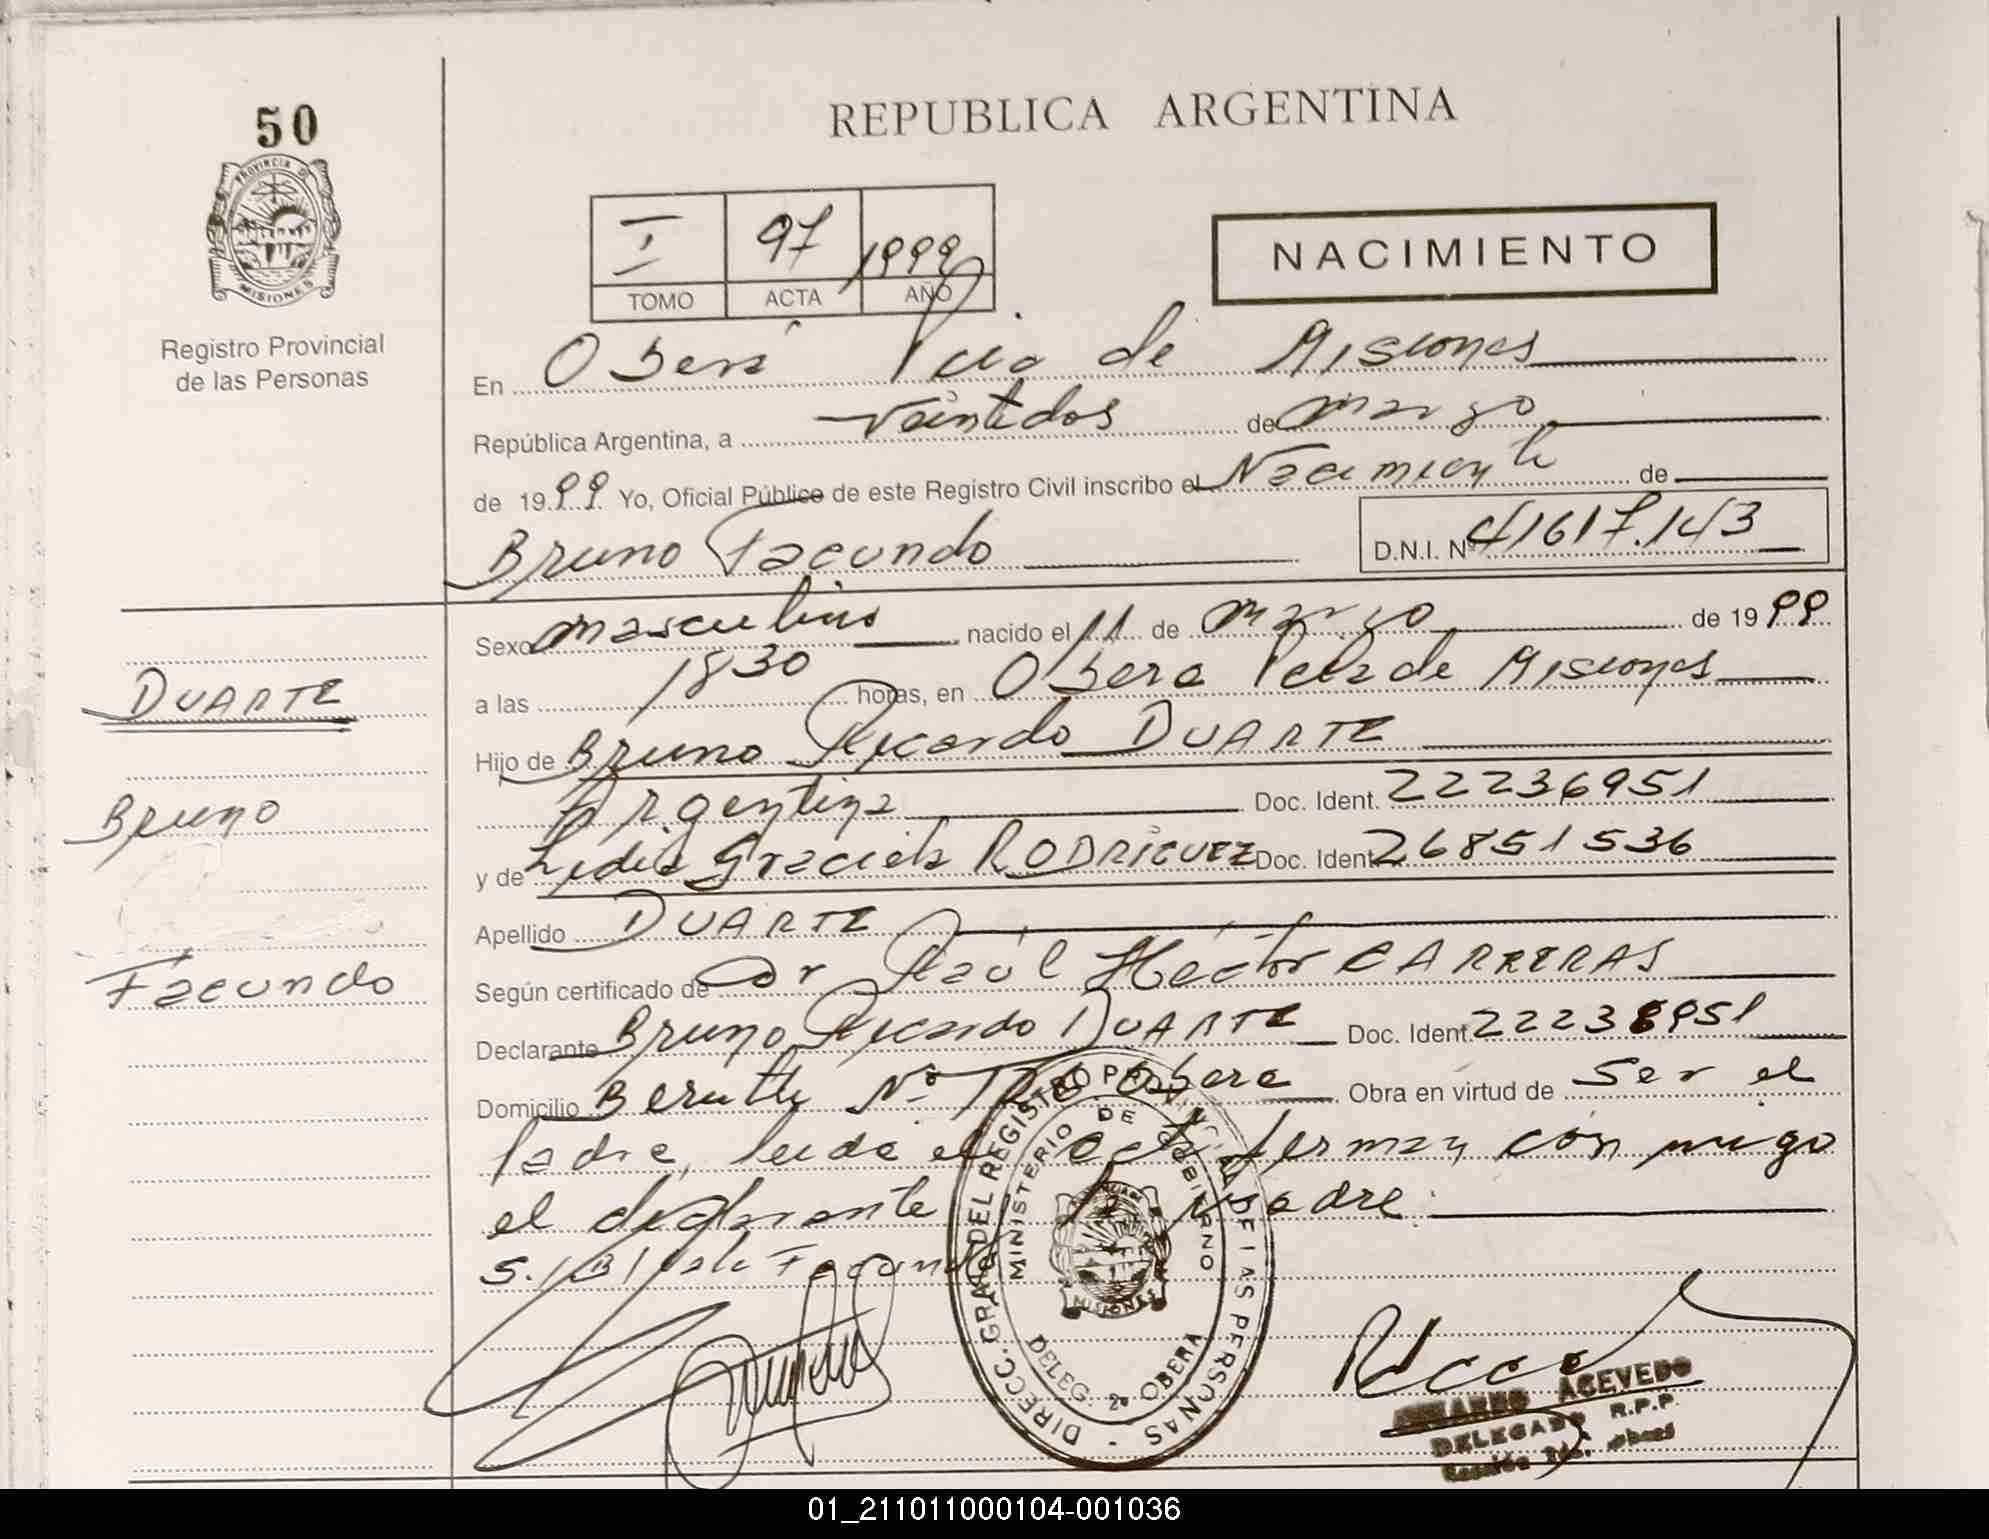 50
PROVINCIA D
MISIONES
Registro Provincial
de las Personas
REPUBLICA ARGENTINA
I 97 1999
TOMO ACTA AÑO
NACIMIENTO
En Oberá Pcia de Misiones
República Argentina, a veintidos de marzo
de 1999 Yo, Oficial Público de este Registro Civil inscribo el Nacimiento de
Bruno Facundo D.N.I. Nº 41617.143
Sexo masculino nacido el 11 de marzo de 1999
a las 1830 horas, en Obera Pcia de Misiones
DUARTE
Hijo de Bruno Ricardo DUARTE
Argentina Doc. Ident. 22236951
Bruno
y de Lidia Graciela RODRIGUEZ Doc. Ident. 26851536
Apellido DUARTE
Facundo
Según certificado de Dr Raúl Héctor CARRERAS
Declarante Bruno Ricardo DUARTE Doc. Ident. 22236951
Domicilio Nº Obera Obra en virtud de ser el
Padre, leida el acta firman conmigo
el declarante y la madre.
S./B/ Vale Facundo
DIRECC. GRAL. DEL REGISTRO PROVINCIAL DE LAS PERSONAS
MINISTERIO DE GOBIERNO
MISIONES
DELEG. 2º OBERA
ACEVEDO
DELEGADO R.P.P.
01_211011000104-001036